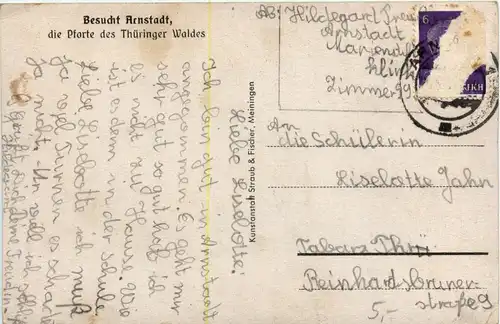 Besucht Arnstadt,
die Pforte des Thüringer Waldes
Abs. Hildegard
Arnstadt
Marienstift
Klinik
Zimmer 99
6
Kunstanstalt Straub & Fischer, Meiningen
Liebe Liselotte!
Ich bin gut in Arnstadt
angekommen. Es geht mir
sehr gut so gut hab ich
es nicht zu Hause. Wie
ist es denn in der Schule
Liebe Liselotte ich muß
ja viel Turnen es schadet
ja nichts. Nun will ich
Deine Freundin
An
die Schülerin
Liselotte Jahn
Tabarz Thür
Reinhardsbrunner-
straße 9
5,-